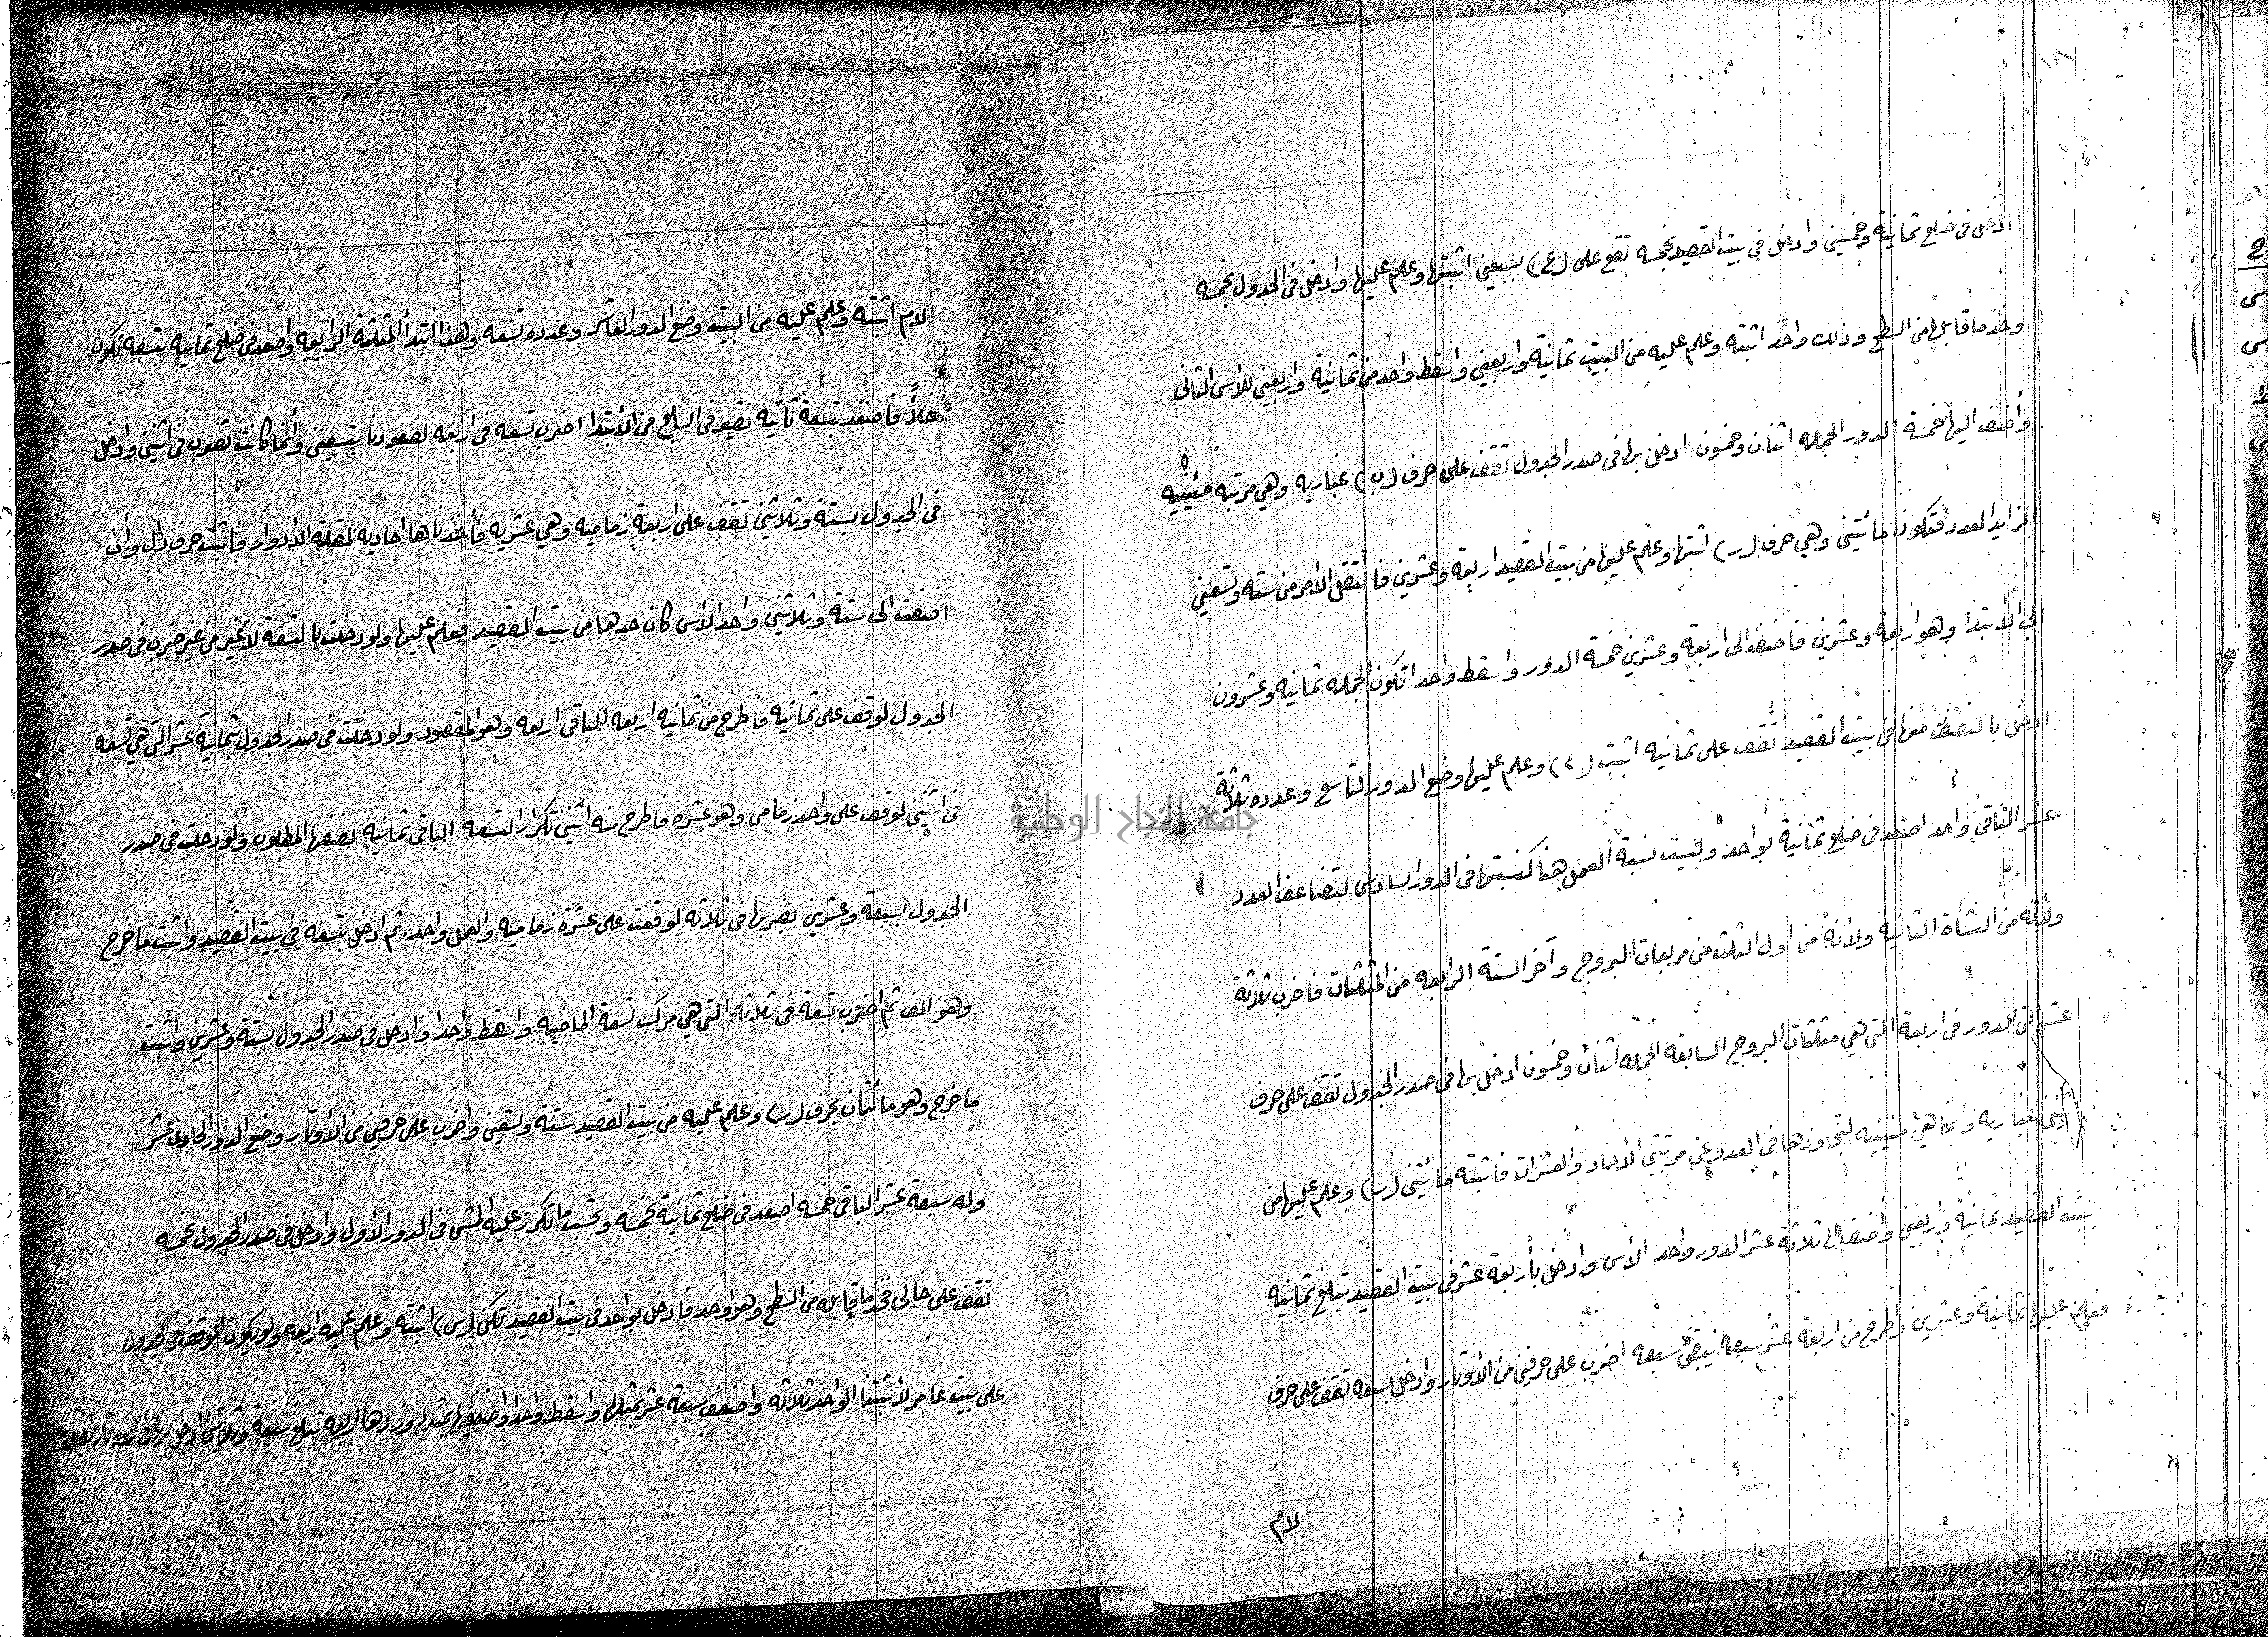 ادخل فى ضلع ثمانية وخمسين وادخل فى بيت القصيد بخمسه تقع على (ع) بسبعين اثبتها وعلم عليها وادخل فى الجدول بخمسه
وخذ ما قابلها من السطح وذلك واحد اثبته وعلم عليه من البيت ثمانية واربعين واسقط واحد من ثمانية واربعين للاس الثانى
وأضف اليها خمسة الدور الجمله اثنان وخمسون ادخل بها فى صدر الجدول تقف على حرف (ب) غباريه وهي مرتبه مئينيه
لزايد العدد فتكون مائتين وهي حرف (ر) اثبتها وعلم عليها من بيت القصيد اربعة وعشرين فأنتقل الأمر من سته وتسعين
الى الأبتدا وهو اربعة وعشرين فاضف الى اربعة وعشرين خمسة الدور واسقط واحدا تكون الجمله ثمانيه وعشرون
ادخل بالنصف منها فى بيت القصيد تقف على ثمانيه اثبت (ح) وعلم عليها وضع الدور التاسع وعدده ثلاثة
عشر الباقى واحد اصعد فى ضلع ثمانية بواحد وليست نسبة العمل هنا كنسبتها فى الدور السادس لتضاعف العدد
ولأنه من النشأة الثانية ولأنه من اول الثلث من مربعات البروج وآخر الستة الرابعه من المثلثات فاضرب ثلاثة
عشر التى للدور فى اربعة التى هي مثلثات البروج السابقه الجمله اثنان وخمسون ادخل بها فى صدر الجدول تقف على حرف
غباريه وانما هي مئينيه لتجاوزها فى العدد عن مرتبتى الأحاد والعشرات فاثبته مائتين (ر) وعلم عليها من
بيت القصيد ثمانية واربعين وأضف الى ثلاثة عشر الدور واحد الأس وادخل بأربعة عشر فى بيت القصيد تبلغ ثمانيه
فعلم عليها ثمانية وعشرين واطرح من اربعة عشر سبعه يبقى سبعه اضرب على حرفين من الأوتار وادخل بسبعه تقف على حرف
لام
لام اثبته وعلم عليه من البيت وضع الدور العاشر وعدده تسعه وهذا ابتدأ المثلثة الرابعه واصعد فى ضلع ثمانيه بتسعه تكون
خلأً فاصعد بتسعة ثانيه تصير فى السابع من الأبتدا اضرب تسعه فى اربعه لصعودنا بتسعين وأنما كانت تضرب فى اثنين وادخل
فى الجدول بستة وثلاثين تقف على اربعة زماميه وهي عشريه فأخذناها احاديه لقلة الأدوار فاثبت حرف دال وأن
اضفت الى ستة وثلاثين واحد الأس كان حدها من بيت القصيد فعلم عليها ولو دخلت بالتسعة لا غير من غير ضرب فى صدر
الجدول لوقف على ثمانيه فاطرح من ثمانيه اربعه الباقى اربعه وهو المقصود ولو دخلت فى صدر الجدول بثمانية عشر التى هي تسعه
فى اثنين لوقف على واحد زمامى وهو عشره فاطرح منه اثنين تكرار التسعه الباقى ثمانيه نصفها المطلوب ولو دخلت فى صدر
الجدول بسبعة وعشرين بضربها فى ثلاثه لوقعت على عشرة زماميه والعمل واحد ثم ادخل بتسعه فى بيت القصيد واثبت ما خرج
وهو الف ثم اضرب تسعة فى ثلاثه التى هي مركب تسعة الماضيه واسقط واحدا وادخل فى صدر الجدول بستة وعشرين واثبت
ما خرج وهو مأئتان بحرف (ر) وعلم عليه من بيت القصيد ستة وتسعين واضرب على حرفين من الأوتار وضع الدور الحادى عشر
وله سبعة عشر الباقى خمسه اصعد فى ضلع ثمانية بخمسه وتحسب ما تكرر عليه المشى فى الدور الأول وادخل فى صدر الجدول بخمسه
تقف على خالى فخذ ما قابله من السطح وهو واحد فادخل بواحد فى بيت القصيد تكن (س) اثبته وعلم عليه اربعه ولو يكون الوقف فى الجدول
على بيت عامر لأثبتنا الواحد ثلاثه واضف سبعة عشر بمثلها واسقط واحدا واضعفها بمثلها وزدها اربعه تبلغ سبعة وثلاثين ادخل بها فى الأوتار تقف على
جامعة النجاح الوطنية